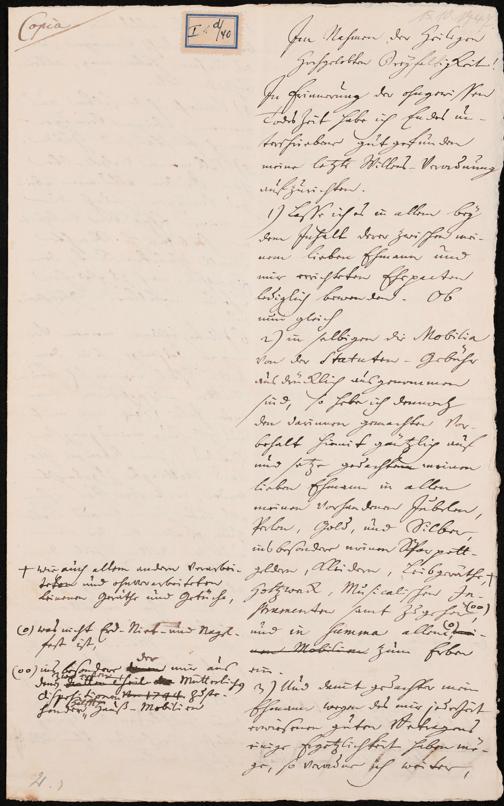 Copia
I d/40
Im Nahmen der Heiligen
Hochgelobten Dreyfaltigkeit!
In Erinnerung der ohngewissen
Todes Zeit habe ich Endes un-
terschriebene gut gefunden
meine letzte Willens-Verordnung
aufzurichten.
1) Lasse ich es in allem bey
dem Inhalt derer zwischen mei-
nem lieben Ehmann und
mir errichteten Ehepacten
lediglich bewenden. Ob
nun gleich
2) in selbigen die Mobilia
von der Statuten-Gebühr
ausdrücklich ausgenommen
sind, so hebe ich dennoch
den darinnen gemachten Vor-
behalt hiemit gäntzlich auf
und setze gedachten meinen
lieben Ehmann in allen
meinen vorhandenen Jubelen,
Perlen, Gold, und Silber,
insbesondere meinen
geldern, Kleidern, Leibgeräthe, +
Holtzwerk, Musicalischen In-
strumenten samt Zugehör (00)
und in Summa allem (0)
Mobilien zum Erben
ein.
3) Und damit gedachter mein
Ehmann wegen des mir jederzeit
erwiesenen guten Betragens
einige Ergötzlichkeit haben mö-
ge, so verordne ich weiter,
+ wie auch allem andern verarbei-
teten und ohnverarbeiteten
leinenen Geräthe und Getüche,
(0) was nicht Erd- Niet- und Nagel-
fest ist,
(00) insbesondere der mir aus
Mütterlichen
disposition 1744 zuste-
henden Hauß-Mobilien
2.)